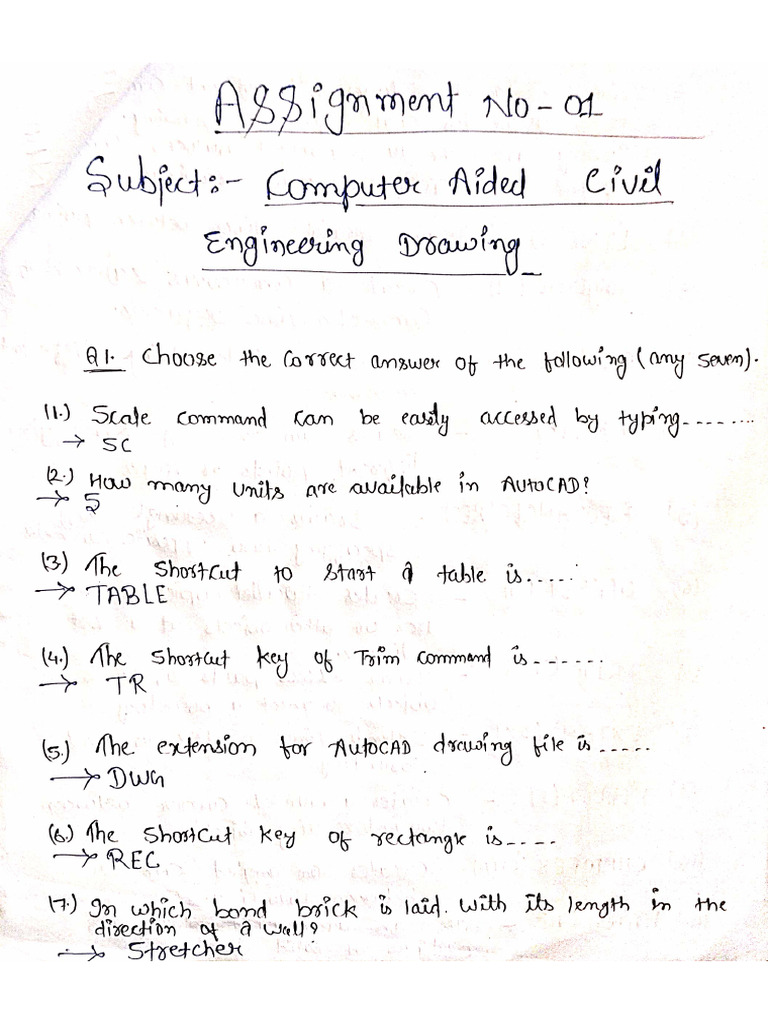 Assignment No-01
Subject:- Computer Aided Civil
Engineering Drawing
Q1. Choose the correct answer of the following (any seven).
(1.) Scale command can be easily accessed by typing........
→ SC
(2.) How many units are available in AutoCAD?
→ 5
(3) The Shortcut to start a table is......
→ TABLE
(4.) The Shortcut key of Trim command is.......
→ TR
(5.) The extension for AutoCAD drawing file is.....
→ DWG
(6.) The Shortcut key of rectangle is.....
→ REC
(7.) In which bond brick is laid. with its length in the
direction of a wall?
→ Stretcher